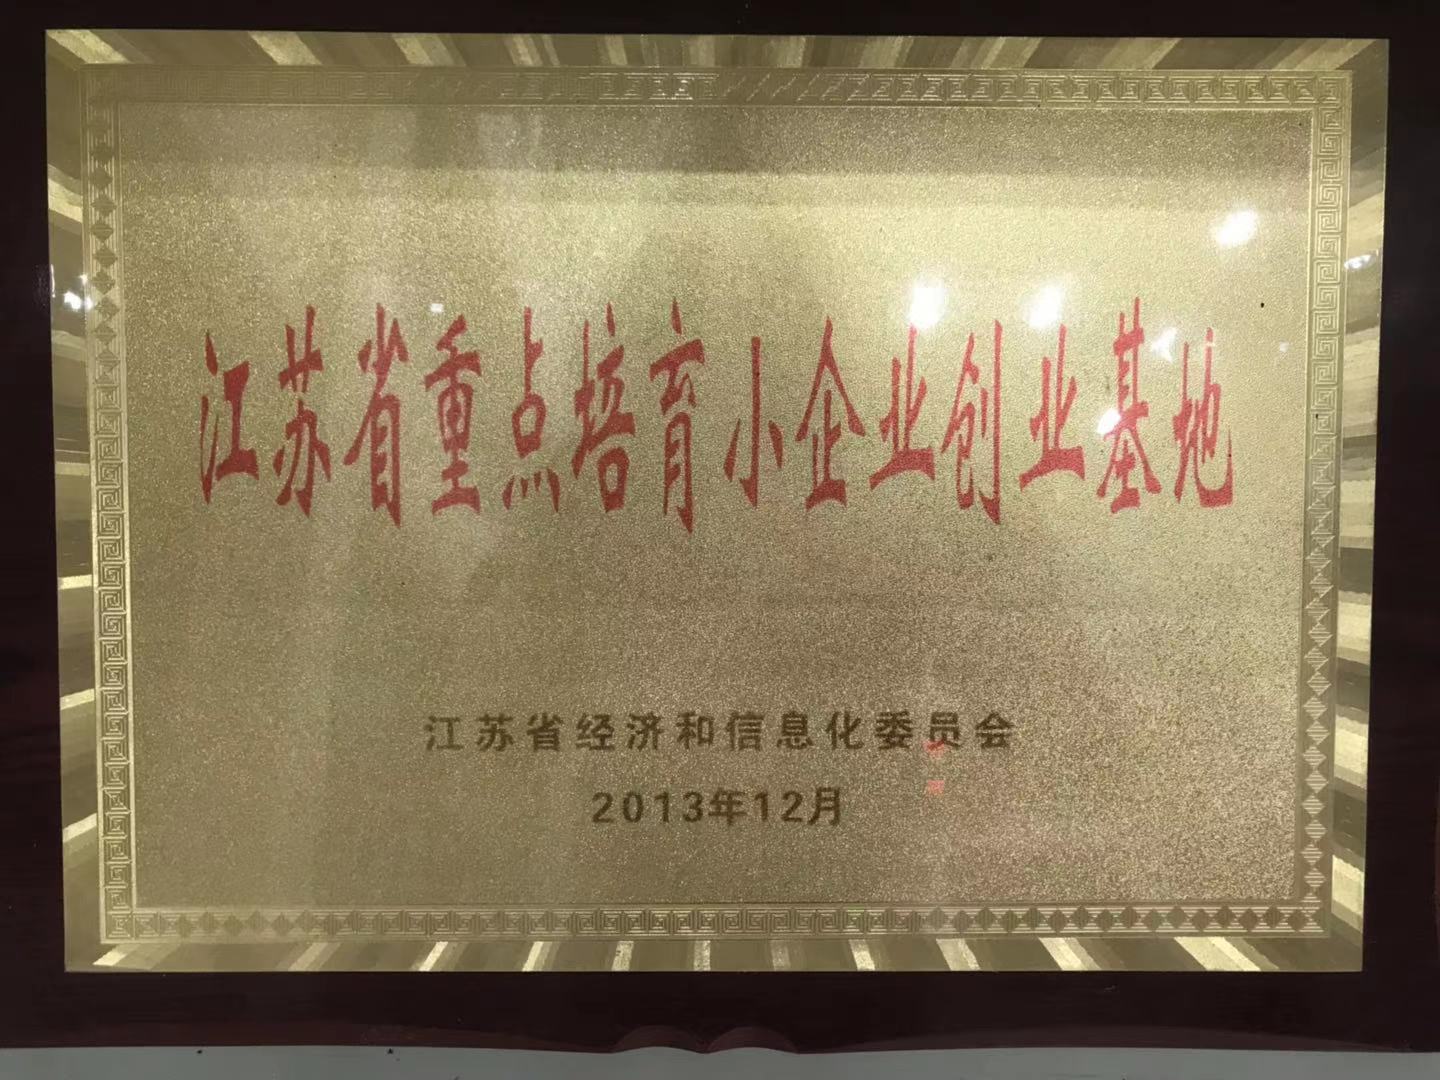 江苏省重点培育小企业创业基地
江苏省经济和信息化委员会
2013年12月